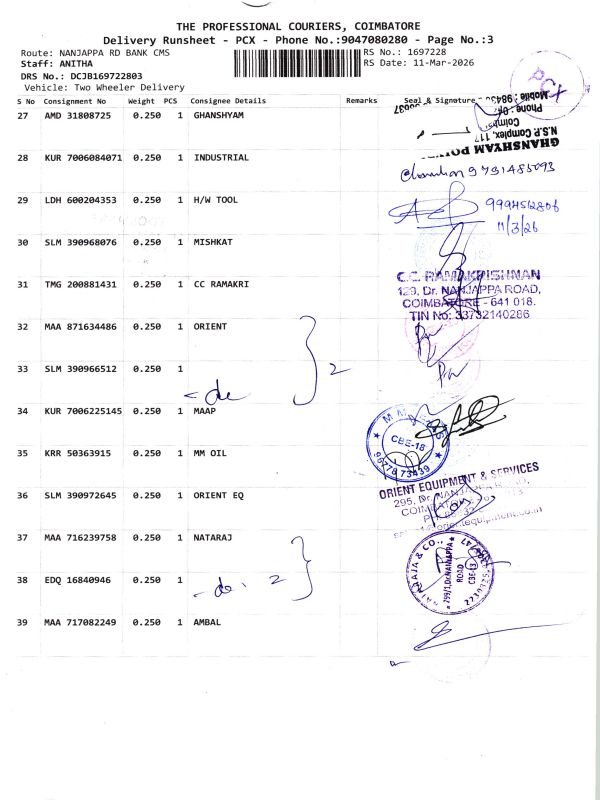 THE PROFESSIONAL COURIERS, COIMBATORE
Delivery Runsheet - PCX - Phone No.:9047080280 - Page No.:3
Route: NANJAPPA RD BANK CMS
RS No.: 1697228
Staff: ANITHA
RS Date: 11-Mar-2026
DRS No.: DCJB169722803
Vehicle: Two Wheeler Delivery
PCX
S No Consignment No Weight PCS Consignee Details Remarks Seal & Signature
27 AMD 31808725 0.250 1 GHANSHYAM
N.S.P. Complex, 111,
28 KUR 7006084071 0.250 1 INDUSTRIAL
29 LDH 600204353 0.250 1 H/W TOOL
9994512806
11/3/26
30 SLM 390968076 0.250 1 MISHKAT
31 TMG 200881431 0.250 1 CC RAMAKRI
C.C. RAMAKRISHNAN
129, Dr. NANJAPPA ROAD,
COIMBATORE - 641 018.
TIN No: 33732140286
32 MAA 871634486 0.250 1 ORIENT
33 SLM 390966512 0.250 1
-do 2
34 KUR 7006225145 0.250 1 MAAP
35 KRR 50363915 0.250 1 MM OIL
CBE-18
96778 73439
36 SLM 390972645 0.250 1 ORIENT EQ
ORIENT EQUIPMENT & SERVICES
37 MAA 716239758 0.250 1 NATARAJ
38 EDQ 16840946 0.250 1
-do. 2
NATARAJA & CO.,
299/1, Dr.NANJAPPA
ROAD
39 MAA 717082249 0.250 1 AMBAL